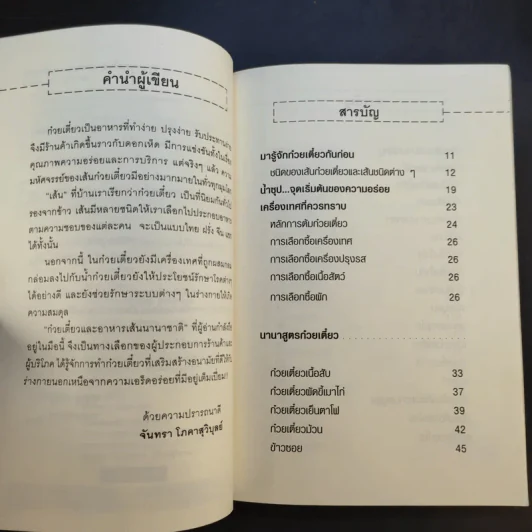 คำนำผู้เขียน
ก๋วยเตี๋ยวเป็นอาหารที่ทำง่าย ปรุงง่าย รับประทานง่าย
จึงมีร้านค้าเกิดขึ้นราวกับดอกเห็ด มีการแข่งขันทั้งใน
คุณภาพความอร่อยและการบริการ แต่จริงๆ แล้ว
มหัศจรรย์ของเส้นก๋วยเตี๋ยวมีอย่างมากมายในทั่วทุก
"เส้น" ที่บ้านเราเรียกว่าก๋วยเตี๋ยว เป็นที่นิยมกัน
รองจากข้าว เส้นมีหลายชนิดให้เราเลือกไปประกอบอาหาร
ตามความชอบของแต่ละคน จะเป็นแบบไทย ฝรั่ง จีน
ได้ทั้งนั้น
นอกจากนี้ ในก๋วยเตี๋ยวยังมีเครื่องเทศที่ถูกผสม
กล่อมลงไปกับน้ำก๋วยเตี๋ยวยังให้ประโยชน์รักษาโรคต่างๆ
ได้อย่างดี และยังช่วยรักษาระบบต่างๆ ในร่างกายให้
ความสมดุล
"ก๋วยเตี๋ยวและอาหารเส้นนานาชาติ" ที่ผู้อ่านกำลัง
อยู่ในมือนี้ จึงเป็นทางเลือกของผู้ประกอบการร้านค้า
ผู้บริโภค ได้รู้จักการทำก๋วยเตี๋ยวที่เสริมสร้างอนามัยที่ดีให้
ร่างกายนอกเหนือจากความเอร็ดอร่อยที่มีอยู่เต็มเปี่ยม
ด้วยความปรารถนาดี
จันทรา โภคาสุวิบุลย์
สารบัญ
มารู้จักก๋วยเตี๋ยวกันก่อน 11
ชนิดของเส้นก๋วยเตี๋ยวและเส้นชนิดต่าง ๆ 12
น้ำซุป...จุดเริ่มต้นของความอร่อย 19
เครื่องเทศที่ควรทราบ 23
หลักการต้มก๋วยเตี๋ยว 24
การเลือกซื้อเครื่องเทศ 26
การเลือกซื้อเครื่องปรุงรส 26
การเลือกซื้อเนื้อสัตว์ 26
การเลือกซื้อผัก 26
นานาสูตรก๋วยเตี๋ยว
ก๋วยเตี๋ยวเนื้อสับ 33
ก๋วยเตี๋ยวผัดขี้เมาไก่ 37
ก๋วยเตี๋ยวเย็นตาโฟ 39
ก๋วยเตี๋ยวม้วน 42
ข้าวซอย 45